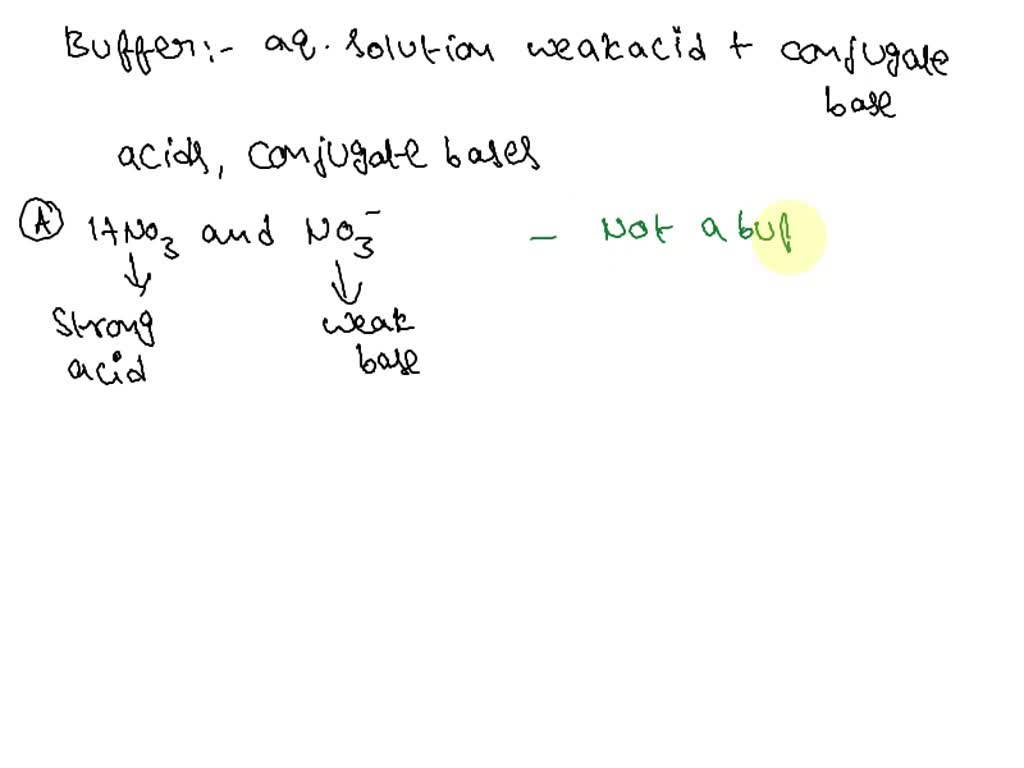 Buffer:- aq. solution weak acid + conjugate
base
acids, conjugate bases
A HNO3 and NO3- - Not a buf
Strong weak
acid base